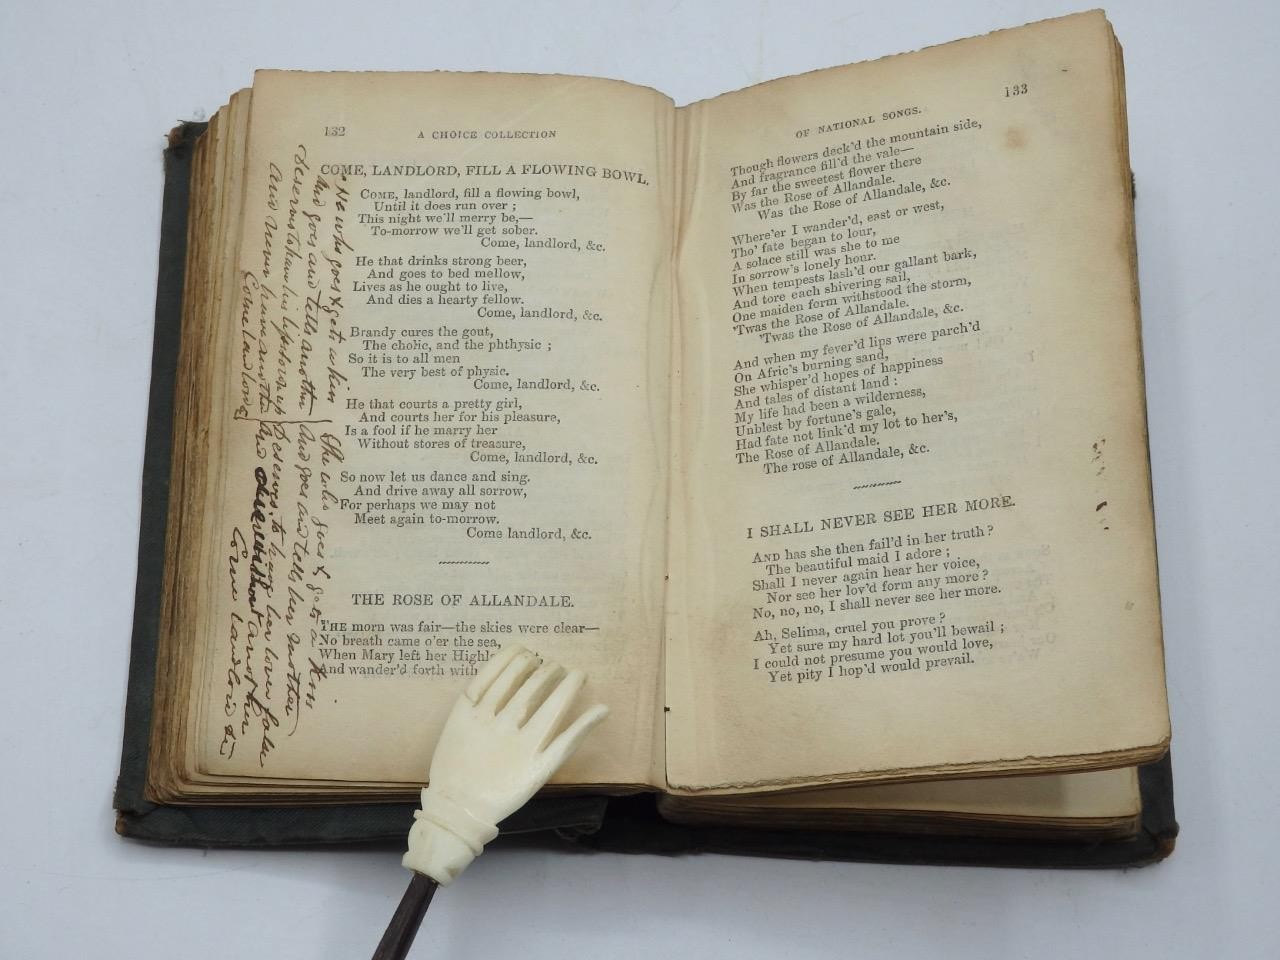 132
A CHOICE COLLECTION
COME, LANDLORD, FILL A FLOWING BOWL.
COME, landlord, fill a flowing bowl,
Until it does run over ;
This night we'll merry be,—
To-morrow we'll get sober.
Come, landlord, &c.
He that drinks strong beer,
And goes to bed mellow,
Lives as he ought to live,
And dies a hearty fellow.
Come, landlord, &c.
Brandy cures the gout,
The cholic, and the phthysic ;
So it is to all men
The very best of physic.
Come, landlord, &c.
He that courts a pretty girl,
And courts her for his pleasure,
Is a fool if he marry her
Without stores of treasure,
Come, landlord, &c.
So now let us dance and sing.
And drive away all sorrow,
For perhaps we may not
Meet again to-morrow.
Come landlord, &c.
THE ROSE OF ALLANDALE.
THE morn was fair—the skies were clear—
No breath came o'er the sea,
When Mary left her
And wander'd forth with
"He who goes & gets a kiss
And goes and tells another
Deserves to have his lips
And never have another
Come landlord
She who goes & gets a kiss
And goes and tells her mother
Deserves to have her lover false
And another
Come landlord
133
OF NATIONAL SONGS.
Though flowers deck'd the mountain side,
And fragrance fill'd the vale—
By far the sweetest flower there
Was the Rose of Allandale.
Was the Rose of Allandale, &c.
Where'er I wander'd, east or west,
Tho' fate began to lour,
A solace still was she to me
In sorrow's lonely hour.
When tempests lash'd our gallant bark,
And tore each shivering sail,
One maiden form withstood the storm,
'Twas the Rose of Allandale.
'Twas the Rose of Allandale, &c.
And when my fever'd lips were parch'd
On Afric's burning sand,
She whisper'd hopes of happiness
And tales of distant land :
My life had been a wilderness,
Unblest by fortune's gale,
Had fate not link'd my lot to her's,
The Rose of Allandale.
The rose of Allandale, &c.
I SHALL NEVER SEE HER MORE.
AND has she then fail'd in her truth ?
The beautiful maid I adore ;
Shall I never again hear her voice,
Nor see her lov'd form any more ?
No, no, no, I shall never see her more.
Ah, Selima, cruel you prove ?
Yet sure my hard lot you'll bewail ;
I could not presume you would love,
Yet pity I hop'd would prevail.